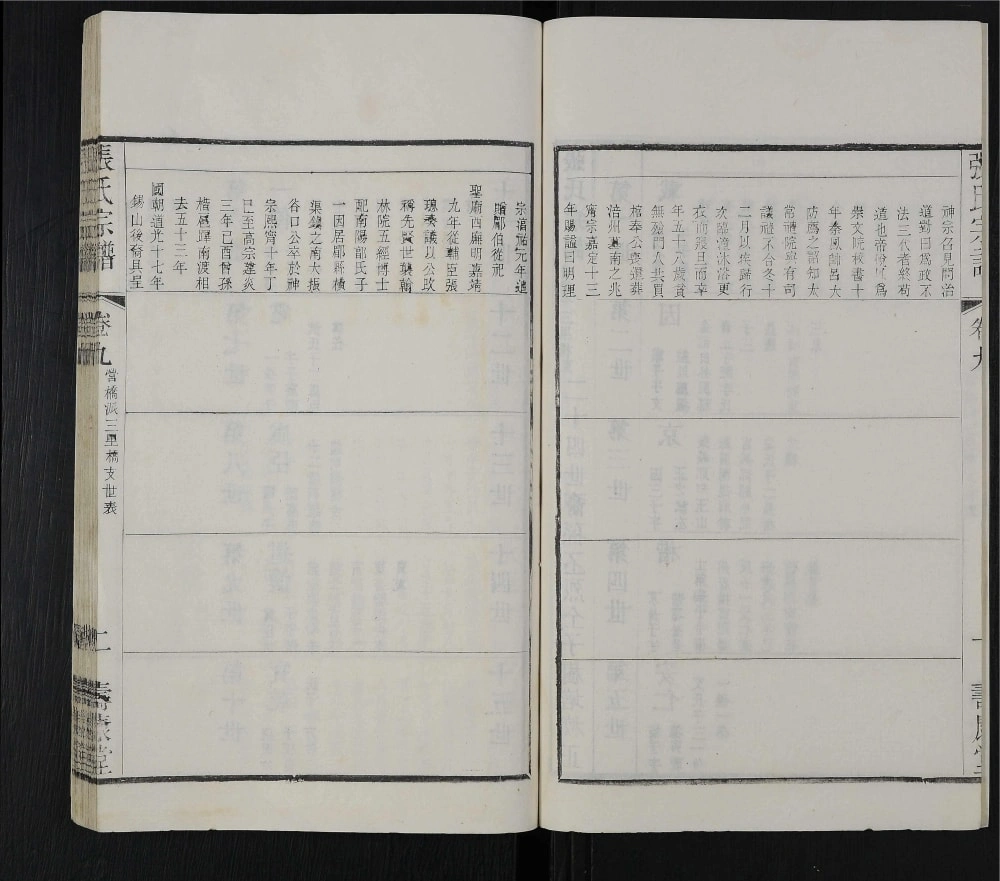 神宗召見問治
道對曰爲政不
法三代者終苟
道也帝悅以爲
崇文院校書十
年秦鳳帥呂大
防薦之詔知太
常禮院與有司
議禮不合冬十
二月以疾歸行
次臨潼沐浴更
衣而寢旦而卒
年五十八歲貧
無斂門人共買
棺奉公喪還葬
涪州墓南之兆
甯宗嘉定十三
年賜諡曰明理
宗淳祐元年追
贈郿伯從祀
聖廟西廡明嘉靖
九年從輔臣張
璁奏議以公改
稱先賢世襲翰
林院五經博士
配南陽郭氏子
一因居郡郿橫
渠鎮之南大振
谷口公卒於神
宗熙甯十年丁
巳至高宗建炎
三年己酉曾孫
楷暹暉南渡相
去五十三年
國朝道光十七年
錫山後裔具呈
張氏宗譜
卷九
營橋派三里橋支世表
壽康堂
張氏宗譜
卷九
壽康堂